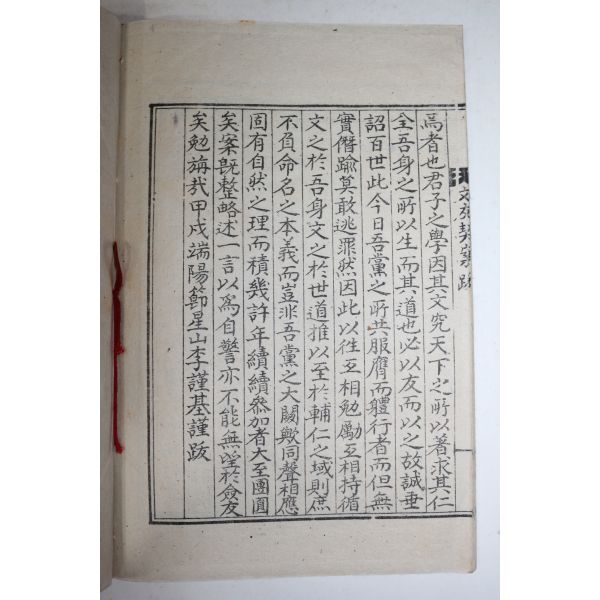 文苑契案跋
焉者也君子之學因其文究天下之所以著求其仁
全吾身之所以生而其道也必以友而以之故誠垂
詔百世此今日吾黨之所共服膺而軆行者而但無
實僭踰莫敢逃罪然因此以徃互相勉勵互相持循
文之於吾身文之於世道推以至於輔仁之域則庶
不負命名之本義而豈非吾黨之大闕歟同聲相應
固有自然之理而積幾許年續續叅加者大至團圓
矣案旣整略述一言以爲自警亦不能無望於僉友
矣勉旃㢤甲戍端陽節星山李謹基謹跋